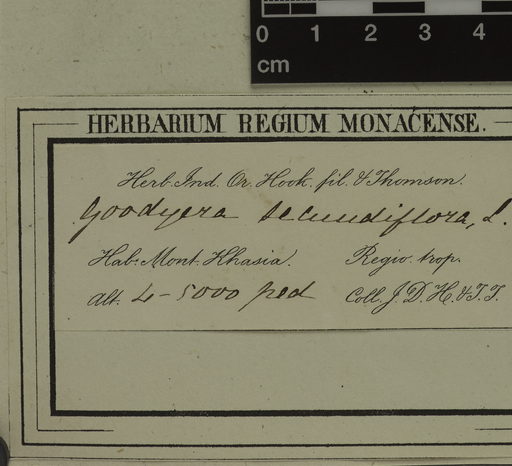 0 1 2 3 4
cm
HERBARIUM REGIUM MONACENSE.
Herb. Ind. Or. Hook. fil. & Thomson.
Goodyera secundiflora, L.
Hab: Mont. Khasia. Regio trop.
Alt. 4-5000 ped Coll. J. D. H. & T. T.